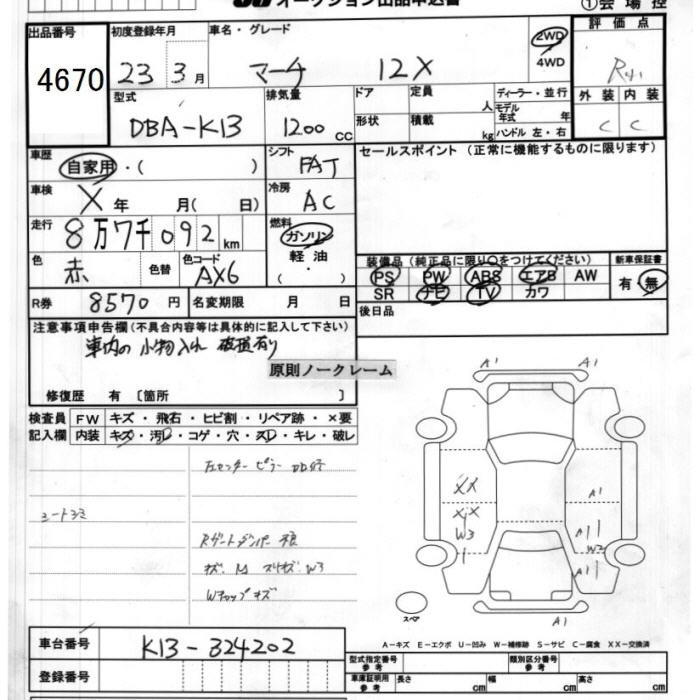 オークション出品申込書
①会場控
出品番号 4670
初度登録年月 23 3月
車名・グレード マーチ 12X
2WD
4WD
評価点 R41
型式 DBA-K13
排気量 1200 cc
ドア
形状
定員 人
積載 kg
ディーラー・並行
モデル年式 年
ハンドル 左・右
外装 C
内装 C
車歴 自家用・( )
シフト FAT
セールスポイント (正常に機能するものに限ります)
車検 X 年 月( 日)
冷房 AC
走行 8万7千092 km
燃料 ガソリン
軽油
( ・ )
色 赤 色替
色コード AX6
装備品(純正品に限り○をつけてください)
新車保証書
PS PW ABS エアB AW
有・無
SR ナビ TV カワ
R券 8570 円
名変期限 月 日
後日品
注意事項申告欄(不具合内容等は具体的に記入して下さい)
車内の 小物入れ 破損有り
原則ノークレーム
修復歴 有 [箇所 ]
検査員 FW キズ・飛石・ヒビ割・リペア跡・×要
記入欄 内装 キズ・汚レ・コゲ・穴・スレ・キレ・破レ
シートシミ
Rゲートダンパー 不良
W3
A1 A1
XX
XX
W3
A1
A1
W2
A1
A1
スペア
A-キズ E-エクボ U-凹み W-補修跡 S-サビ C-腐食 XX-交換済
車台番号 K13-324202
登録番号
型式指定番号 参考
類別区分番号 参考
車庫証明用 参考 長さ cm 幅 cm 高さ cm